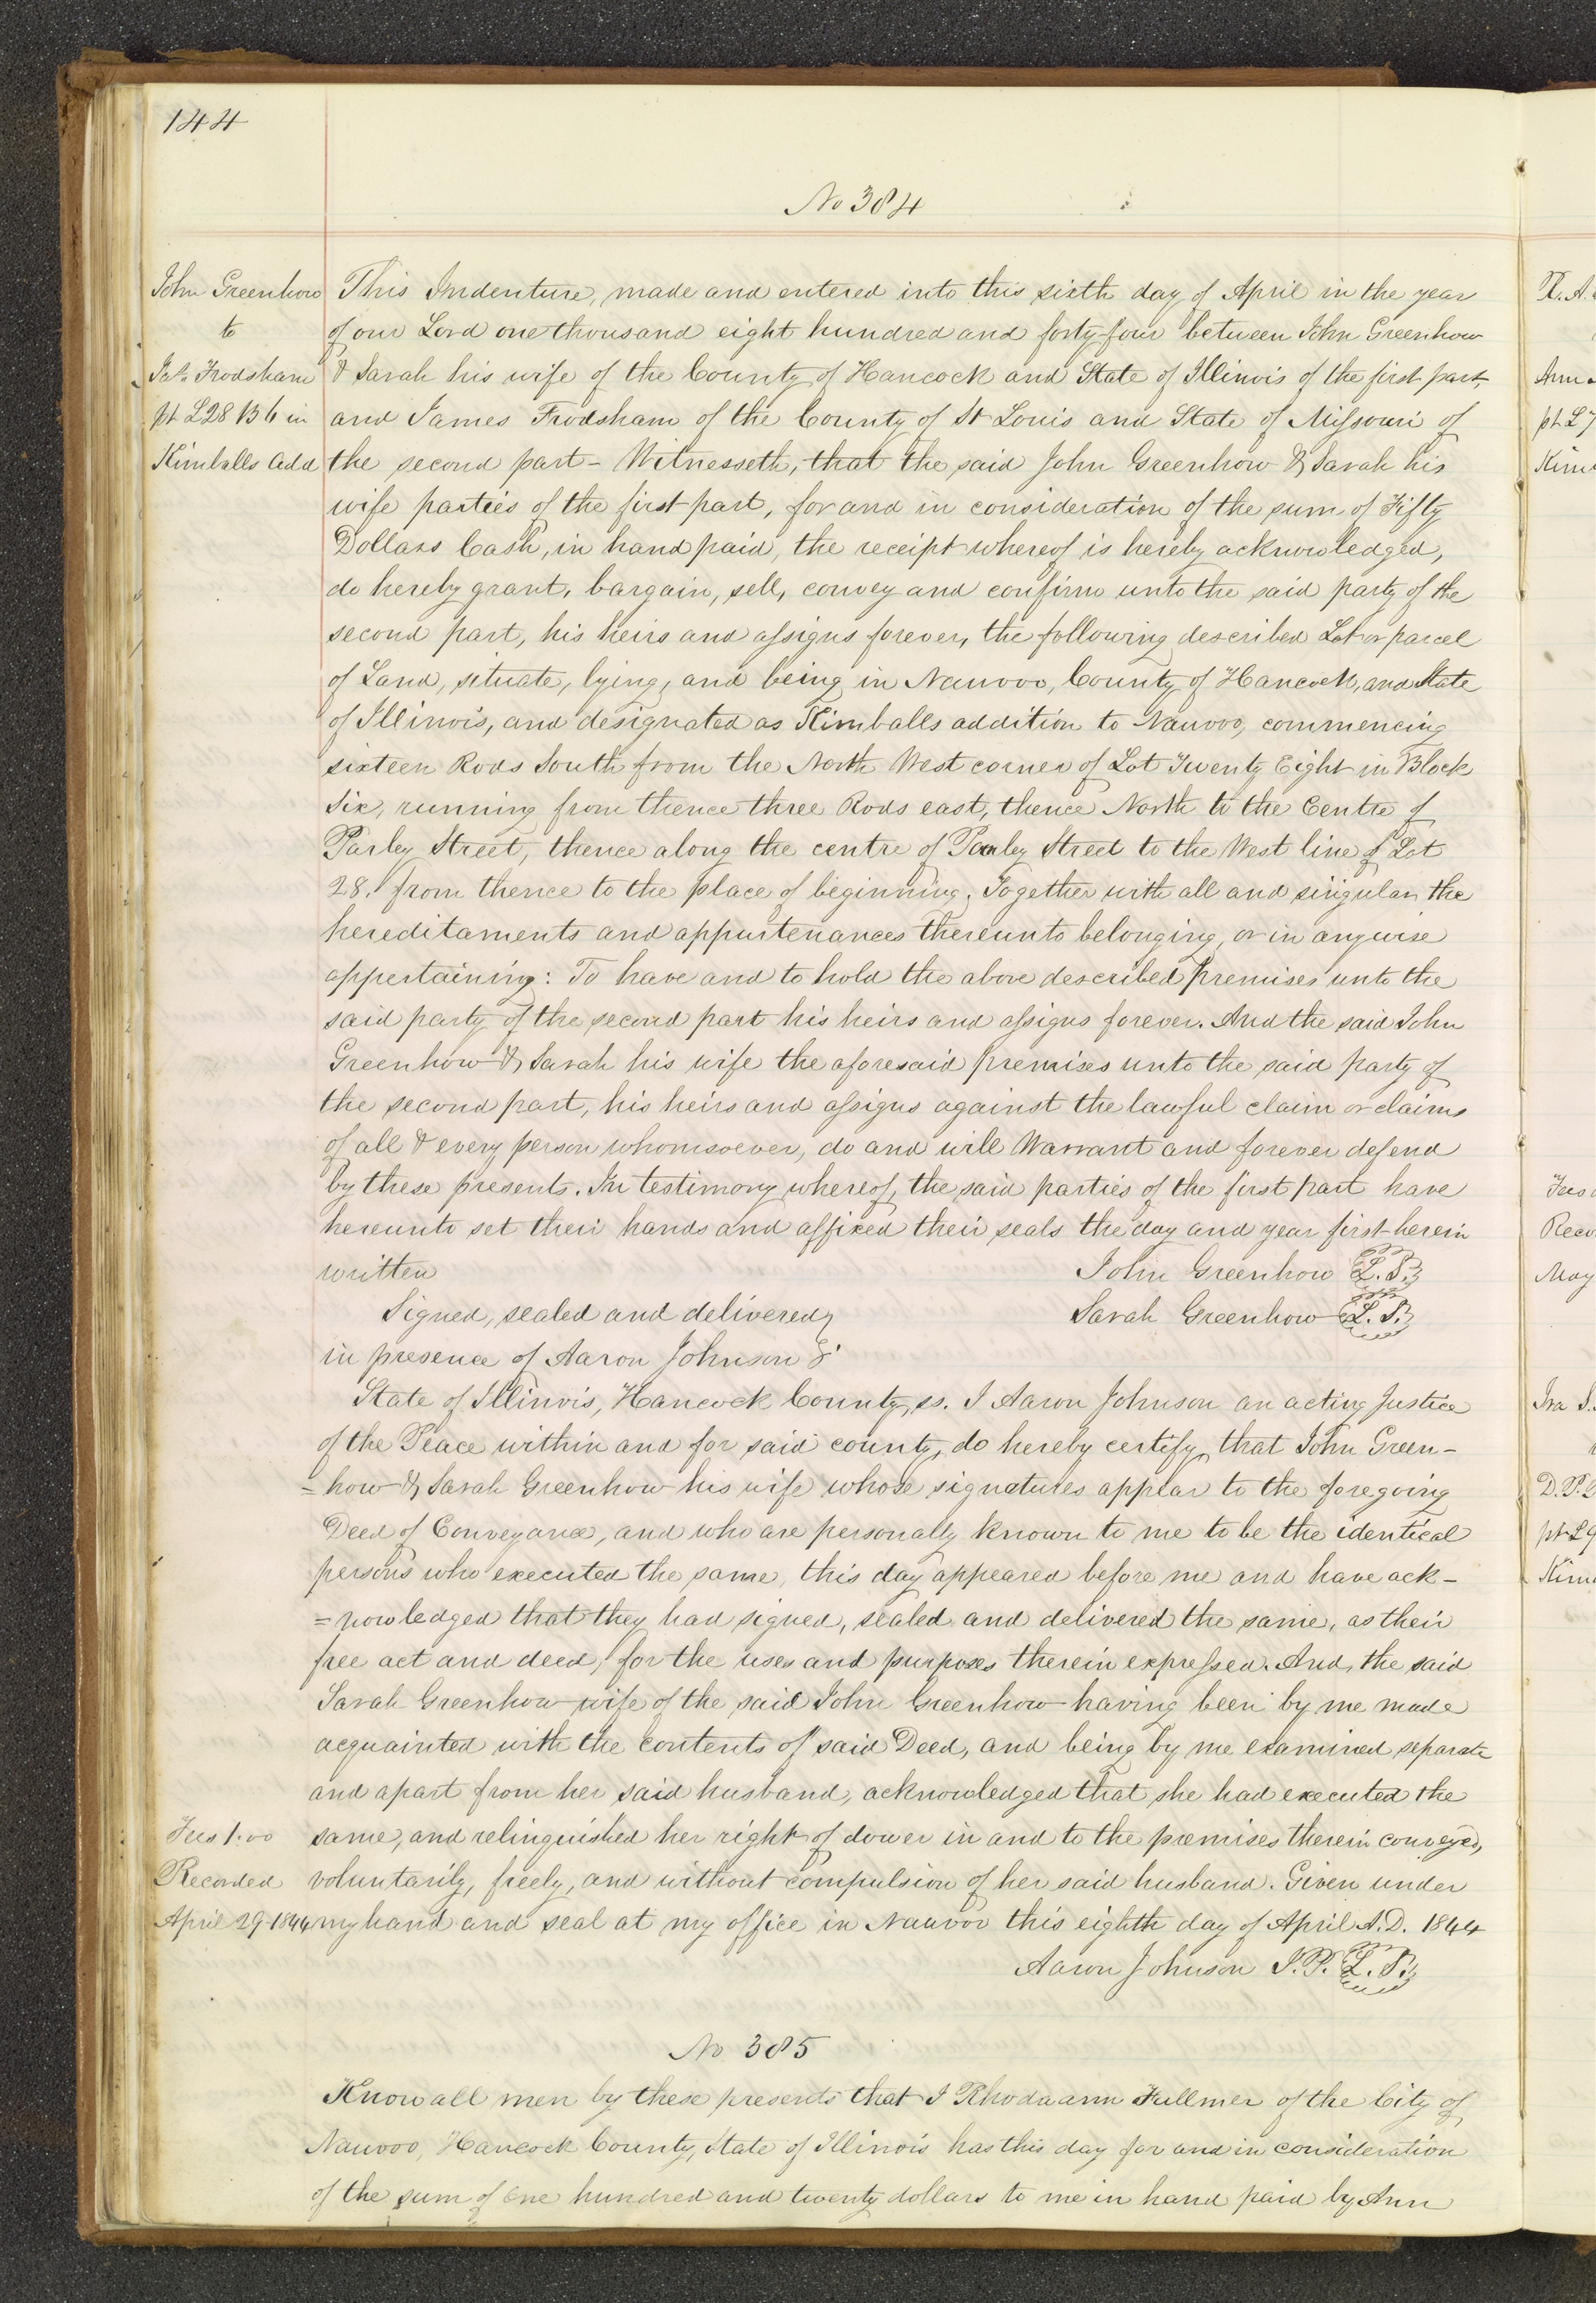 144
No 384
John Greenhow
to
Jas. Frodsham
pt L28 B6 in
Kimballs Add
This Indenture, made and entered into this sixth day of April in the year
of our Lord one thousand eight hundred and forty-four between John Greenhow
& Sarah his wife of the County of Hancock and State of Illinois of the first part,
and James Frodsham of the County of St Louis and State of Missouri of
the second part - Witnesseth, that the said John Greenhow & Sarah his
wife parties of the first part, for and in consideration of the sum of Fifty
Dollars Cash, in hand paid, the receipt whereof is hereby acknowledged,
do hereby grant, bargain, sell, convey and confirm unto the said party of the
second part, his heirs and assigns forever, the following described Lot or parcel
of Land, situate, lying, and being in Nauvoo, County of Hancock, and State
of Illinois, and designated as Kimballs addition to Nauvoo, commencing
sixteen Rods South from the North West corner of Lot Twenty Eight in Block
Six, running from thence three Rods east, thence North to the Centre of
Parley Street, thence along the centre of Parley Street to the West line of Lot
28. from thence to the place of beginning. Together with all and singular the
hereditaments and appurtenances thereunto belonging, or in anywise
appertaining: To have and to hold the above described premises unto the
said party of the second part his heirs and assigns forever. And the said John
Greenhow & Sarah his wife the aforesaid premises unto the said party of
the second part, his heirs and assigns against the lawful claim or claims
of all & every person whomsoever, do and will Warrant and forever defend
by these presents. In testimony whereof, the said parties of the first part have
hereunto set their hands and affixed their seals the day and year first herein
written John Greenhow L.S.
Signed, sealed and delivered Sarah Greenhow L.S.
in presence of Aaron Johnson
State of Illinois, Hancock County, ss. I Aaron Johnson an acting Justice
of the Peace within and for said county, do hereby certify, that John Green-
=how & Sarah Greenhow his wife whose signatures appear to the foregoing
Deed of Conveyance, and who are personally known to me to be the identical
persons who executed the same, this day appeared before me and have ack-
=nowledged that they had signed, sealed and delivered the same, as their
free act and deed, for the uses and purposes therein expressed. And, the said
Sarah Greenhow wife of the said John Greenhow having been by me made
acquainted with the contents of said Deed, and being by me examined separate
and apart from her said husband, acknowledged that she had executed the
same, and relinquished her right of dower in and to the premises therein conveyed,
voluntarily, freely, and without compulsion of her said husband. Given under
my hand and seal at my office in Nauvoo this eighth day of April A.D. 1844
Aaron Johnson J.P. L.S.
Fees 1.00
Recorded
April 29 1844
No 385
Know all men by these presents that I Rhodaann Fullmer of the City of
Nauvoo, Hancock County, State of Illinois has this day for and in consideration
of the sum of One hundred and twenty dollars to me in hand paid by Ann
R. A.
Ann
pt L7
Kim
Fees
Reco
May
Ira S.
D. P.
pt L9
Kim